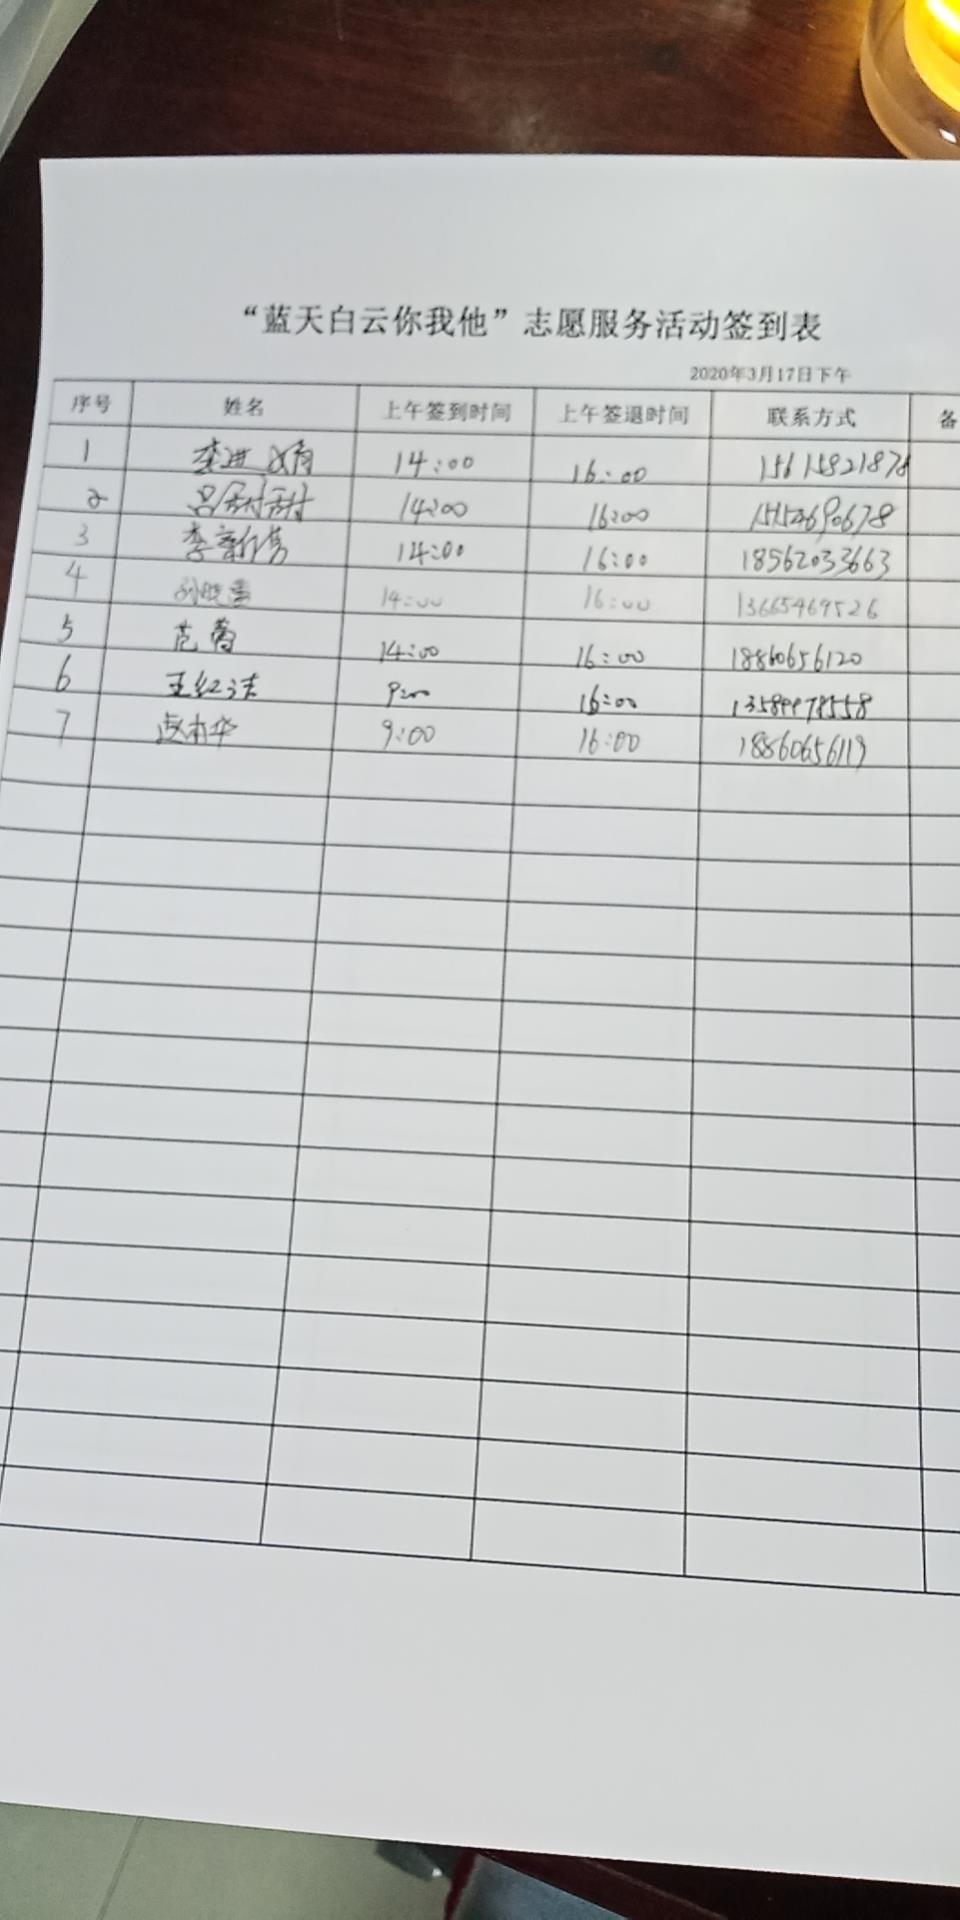 “蓝天白云你我他”志愿服务活动签到表
2020年3月17日下午
序号 姓名 上午签到时间 上午签退时间 联系方式 备
1 李进 14:00 16:00 15615821878
2 吕甜甜 14:00 16:00 15154690678
3 李新 14:00 16:00 18562033663
4 孙晓雪 14:00 16:00 13665469526
5 范蕾 14:00 16:00 18860656120
6 王红洁 9:00 16:00
7 赵 华 9:00 16:00 18860656119